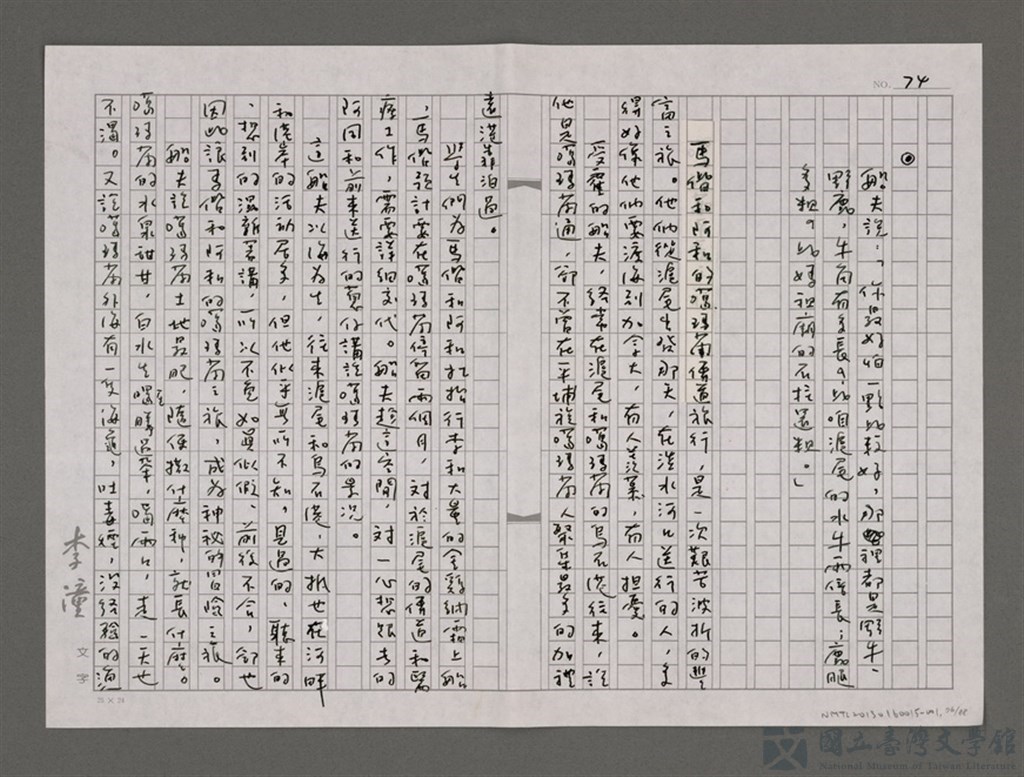 NO. 74
◎
船夫說：「你最好怕一點比較好，那裡都是野牛、
野鹿，牛角有多長？比咱滬尾的水牛兩倍長；鹿腿
多粗？比媽祖廟的石柱還粗。」
馬偕和阿和的噶瑪蘭傳道旅行，是一次艱苦波折的豐
富之旅。他們從滬尾出發那天，在淡水河口送行的人，多
得好像他們要渡海到加拿大，有人羨慕，有人擔憂。
受雇的船夫，經常在滬尾和噶瑪蘭的烏石港往來，說
他是噶瑪蘭通，卻不曾在平埔族噶瑪蘭人聚集最多的加禮
遠港靠泊過。
學生們為馬偕和阿和扛抬行李和大量的金雞納霜上船
，馬偕預計要在噶瑪蘭停留兩個月，對於滬尾的傳道和醫
療工作，需要詳細交代。船夫趁這空閒，對一心想跟去的
阿同和前來送行的蔥仔講說噶瑪蘭的景況。
這船夫以海為生，往來滬尾和烏石港，大抵也在河畔
和港岸的活動居多，但他似乎無所不知，見過的、聽來的
、想到的混新著講，所以不免如真似假、前後不合，卻也
因此讓馬偕和阿和的噶瑪蘭之旅，成為神秘的冒險之旅。
船夫說噶瑪蘭土地最肥，隨便撒什麼種，就長什麼。
噶瑪蘭的水泉甜甘，白水生喝至勝過茶，喝兩口，走一天也
不渴。又說噶瑪蘭外海有一隻海龜，吐毒煙，沒經驗的漁
李潼
文字
25 × 24
NMTL20130180015-001,
國立臺灣文學館
National Museum of Taiwan Literature